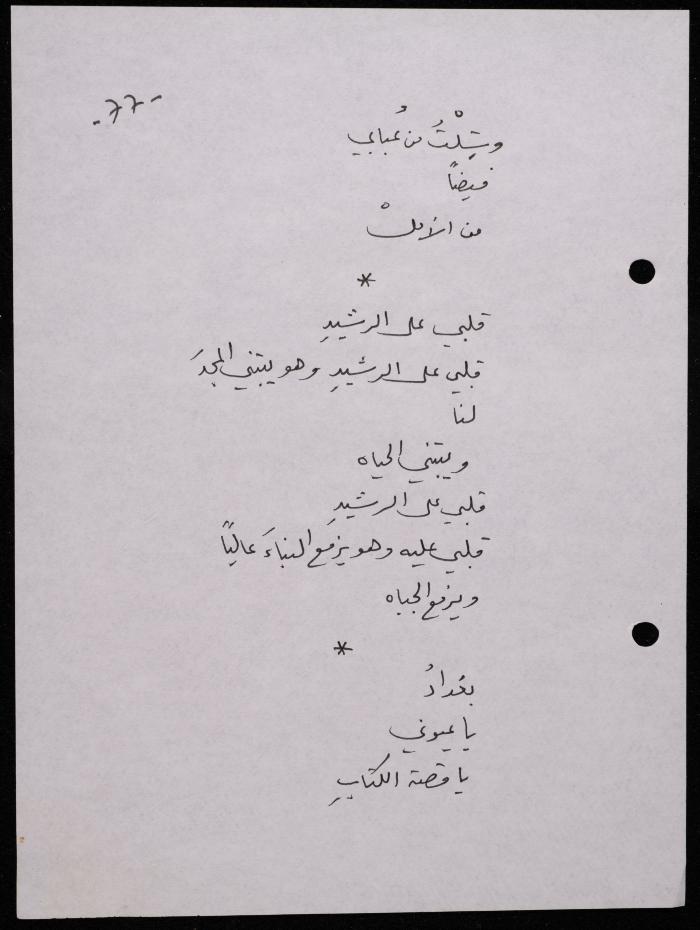 -77-
وشِلْتُ من عُبابي
فيضًا
من الأملْ
*
قلبي على الرشيدِ
قلبي على الرشيدِ وهو يبتني المجدَ
لنا
ويبتني الحياه
قلبي على الرشيدِ
قلبي عليه وهو يرفع البناءَ عاليًا
ويرفع الجباه
*
بغدادُ
يا عيوني
يا قصة الكتابِ